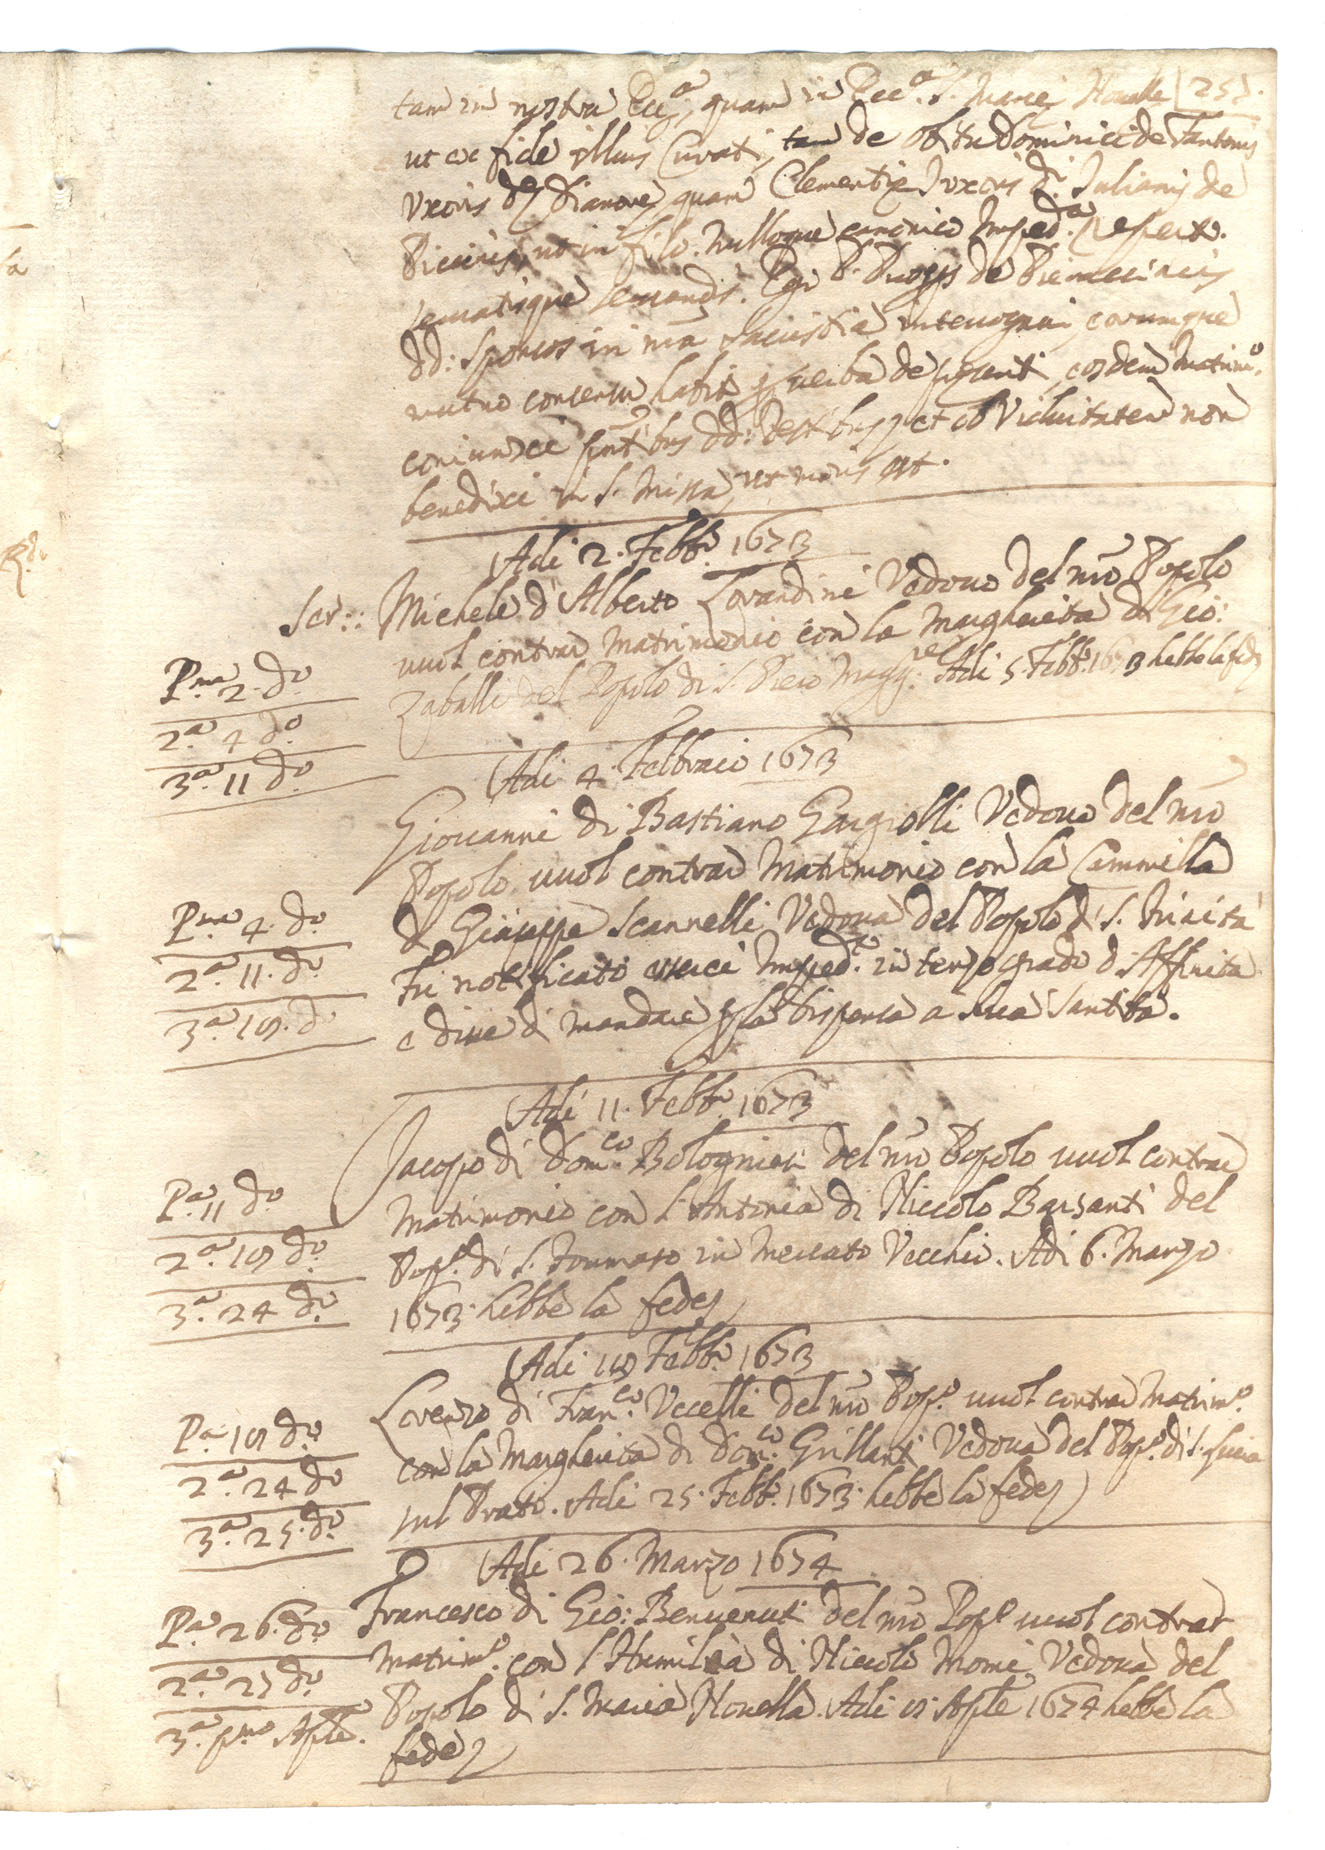 tam in nostra Ecc.a quam in Ecc.a S. Mariae Novelle 25
ut ex fide illius Curati, tam de obitu Dominici de Fantonis
Uxoris quam Clementiae Uxoris Juliani de
nulloque canonico Imped.o reperto.
servatisque servandis. Ego P.
dd: Sponsos in nra Sacristia interrogavi, eorumque
mutuo consensu habito p verba de presenti, eosdem Matrim.o
coniunxi pntibus dd: Testibus, et ob Viduitatem non
benedixi in S. Missa, ut moris est.
Adi 2. Febb.o 1673
Scr:: Michele d'Alberto Lorandini Vedovo del nro Popolo
vuol contrar matrimonio con la Margherita di Gio:
Zaballi del Popolo di S. Piero Magg.re Adi 5. Febb.o 1673 hebbe la fede
P.ma 2. d.o
2.a 4 d.o
3.a 11 d.o
Adi 4. Febbraio 1673
Giovanni di Bastiano Gargiolli Vedovo del nro
Popolo vuol contrar Matrimonio con la Cammilla
di Giuseppe Scannelli Vedova del Popolo di S. Trinita
fu notificato esserci Imped.o in terzo grado d'Affinita
e disse di mandare p la dispensa a Sua Santità.
P.ma 4. d.o
2.a 11. d.o
3.a 18. d.o
Adi 11. Febb.o 1673
Jacopo di Dom.co Bolognesi del nro Popolo vuol contrar
Matrimonio con l'Antonia di Niccolo Barsanti del
Pop.o di S. Tommaso in Mercato Vecchio. Adi 6. Marzo
1673. hebbe la fede
P.a 11 d.o
2.a 18 d.o
3.a 24 d.o
Adi 18 Febb.o 1673
Lorenzo di Fran.co Uccelli del nro Pop.o vuol contrar Matrim.o
con la Margherita di Dom.co Grillanti Vedova del Pop.o di S. Lucia
sul Prato. Adi 25. Febb.o 1673. hebbe la fede
P.a 18 d.o
2.a 24 d.o
3.a 25. d.o
Adi 26. Marzo 1674
Francesco di Gio: Benvenuti del nro Pop.o vuol contrar
Matrim.o con l'Humilia di Niccolo Momi Vedova del
Popolo di S. Maria Novella. Adi Aple 1674 hebbe la
fede
P.a 26. d.o
2.a 27 d.o
3.a p.mo Aple.